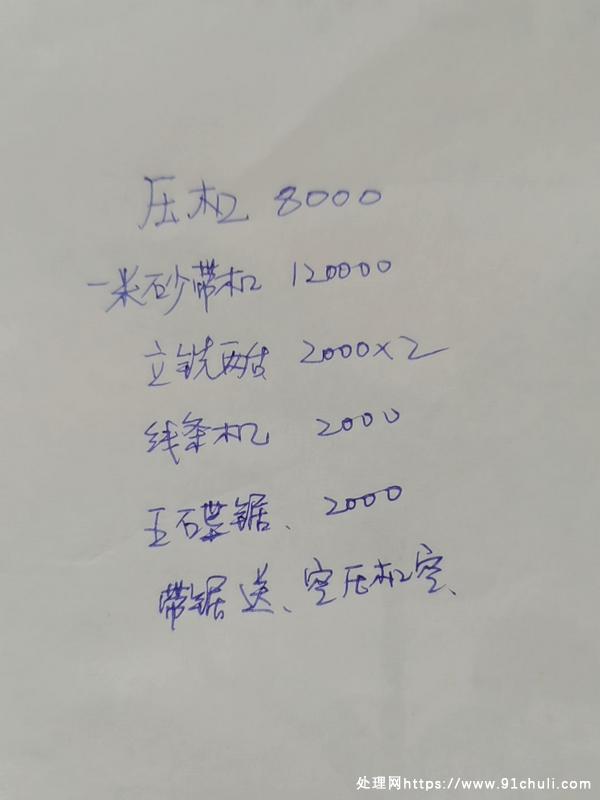 压机 8000
一米砂带机 120000
立铣两台 2000×2
线条机 2000
王石碟锯、2000
带锯送、空压机空、
处理网https://www.91chuli.com